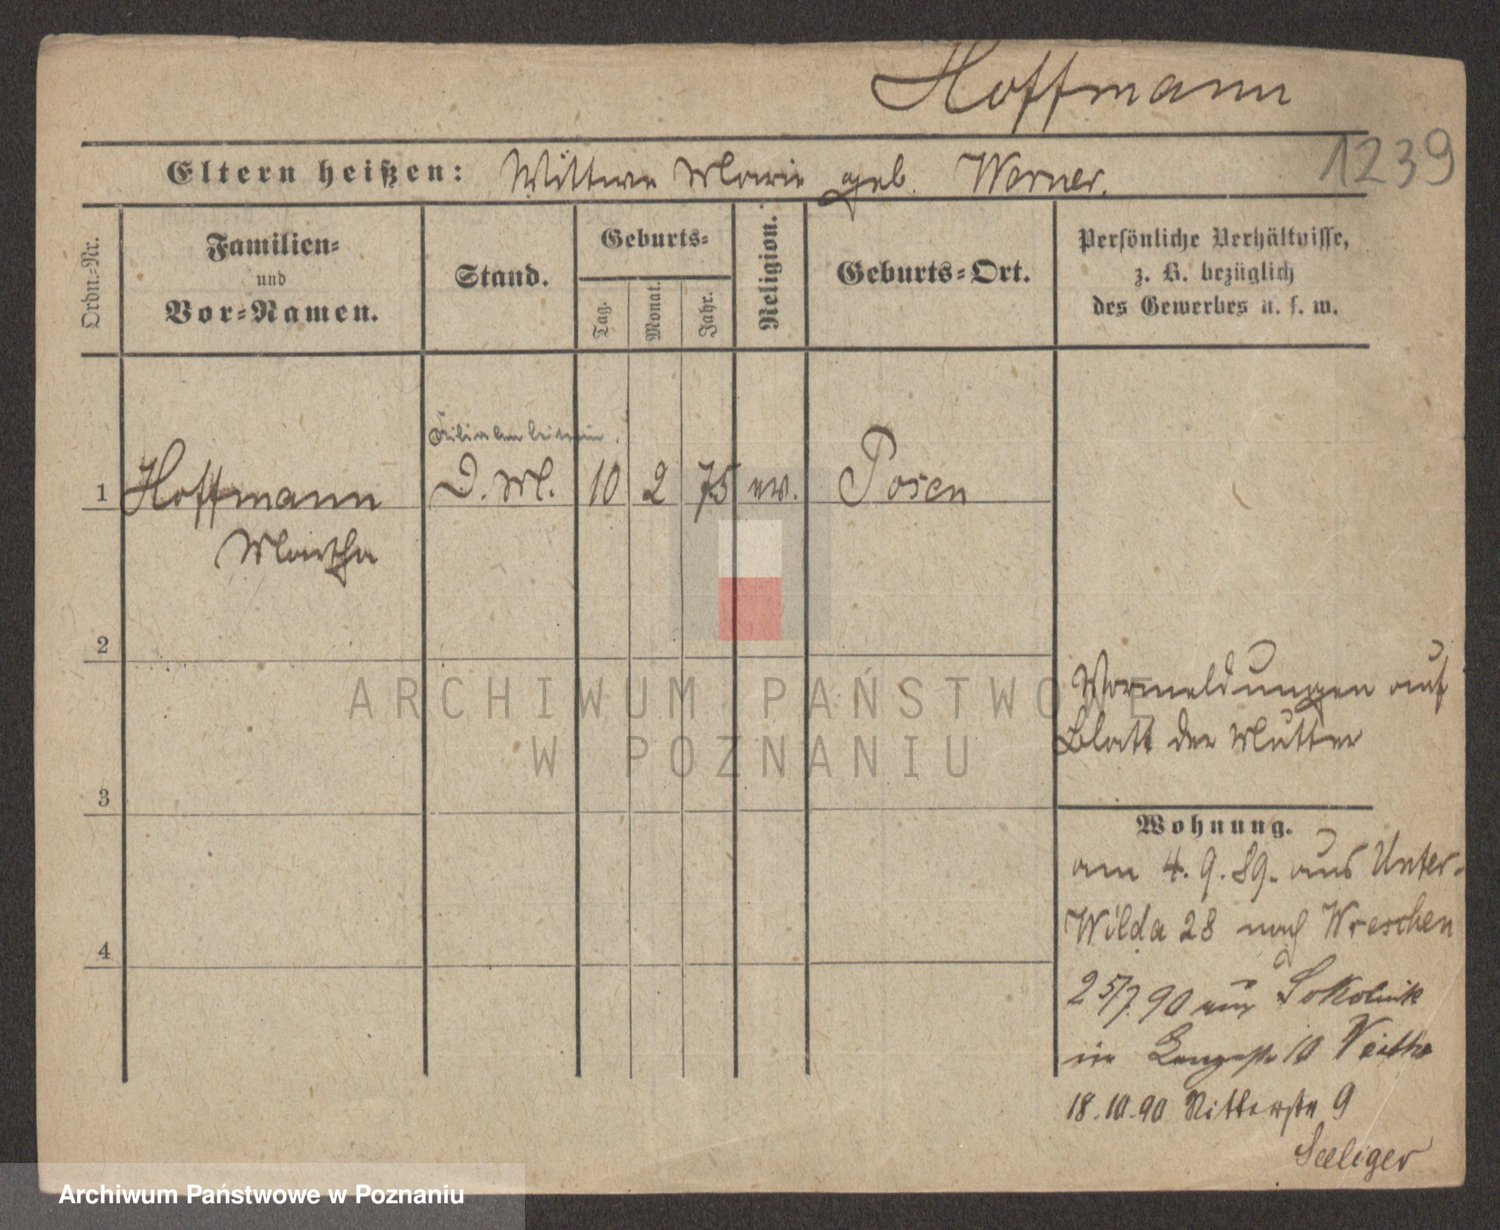 Hoffmann
1239
Eltern heißen: Wittwe Marie geb. Werner.
Ordn.-Nr.
Familien-
und
Vor-Namen.
Stand.
Geburts-
Tag.
Monat.
Jahr.
Religion.
Geburts-Ort.
Persönliche Verhältnisse,
z. B. bezüglich
des Gewerbes u. s. w.
Filialenleiterin.
1 Hoffmann D. M. 10 2 75 ev. Posen
Martha
2
Vormeldungen auf
Blatt der Mutter
3
Wohnung.
am 4.9.89. aus Unter-
Wilda 28 nach Wreschen
4
25/7.90 aus Sokolnik
in 10
18.10.90 Ritterstr 9
Seeliger
ARCHIWUM PAŃSTWOWE
W POZNANIU
Archiwum Państwowe w Poznaniu